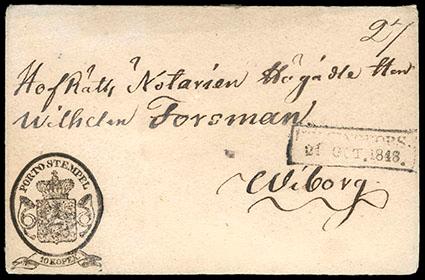 27
Hofrätts Notarien Högädle Herr
Wilhelm Forsman
HELSINGFORS.
21 OCT. 1848.
Wiborg
PORTO STEMPEL
10 KOPEK